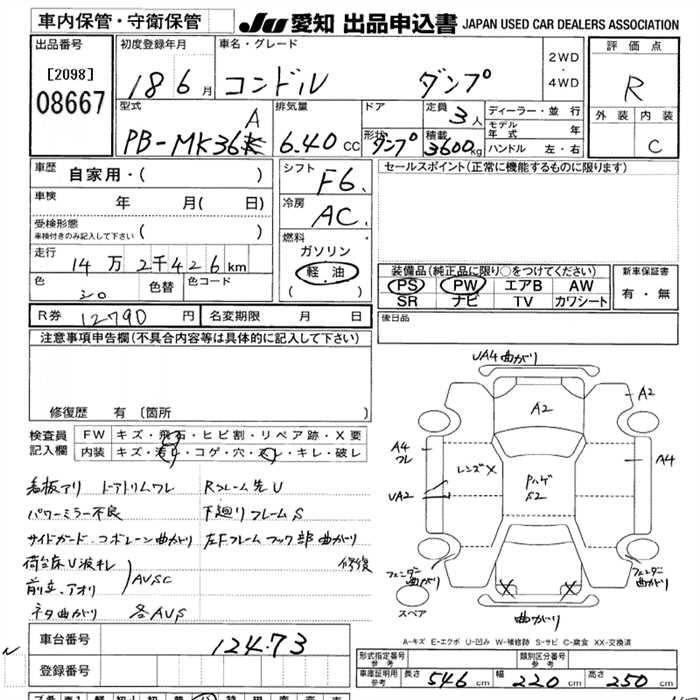 車内保管・守衛保管 JU愛知 出品申込書 JAPAN USED CAR DEALERS ASSOCIATION
出品番号 初度登録年月 車名・グレード 2WD・4WD 評価点
[2098] 18 6月 コンドル ダンプ R
08667 型式 排気量 ドア 定員 3人 ディーラー・並行 外装 内装
PB-MK36 A 6.40cc 形状 ダンプ 積載 3600kg モデル年式 年 C
ハンドル 左・右
車歴 自家用・( ) シフト F6. セールスポイント(正常に機能するものに限ります)
車検 年 月( 日) 冷房 AC.
受検形態 車検付きのみ記入して下さい ( ) 燃料
走行 14万2千426km ガソリン
色 色替 色コード 軽・油 装備品(純正品に限り○をつけてください) 新車保証書
シロ ( ) PS PW エアB AW 有・無
SR ナビ TV カワシート
R券 12790円 名変期限 月 日 後日品
注意事項申告欄(不具合内容等は具体的に記入して下さい)
修復歴 有 〔箇所
検査員 FW キズ・飛石・ヒビ割・リペア跡・X要
記入欄 内装 キズ・汚レ・コゲ・穴・スレ・キレ・破レ
UA4 曲がり
A2
A2
A4
フレ
A4
レンズX
Pハゲ
S2
UA2
フェンダー曲がり
フェンダー曲がり
スペア
X X
曲がり
看板アリ ドアトリムワレ Rフレーム先U
パワーミラー不良 下廻りフレームS
サイドガード・コボレーン曲がり 左Fフレームフック部曲がり
荷台床U波キレ 修復
前立、アオリ AUSC
ネタ曲がり 各AUS
A-キズ E-エクボ U-凹み W-補修跡 S-サビ C-腐食 XX-交換済
車台番号 12473
登録番号
形式指定番号 参考 類別区分番号 参考
車庫証明用 参考 長さ 546cm 幅 220cm 高さ 250cm